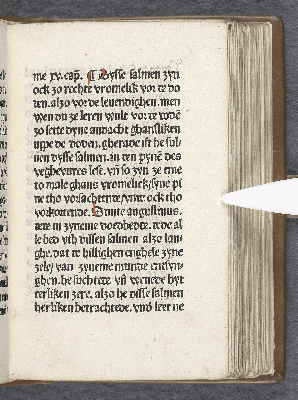 me xv. cap. ¶ Dysse salmen zyn
ock zo rechte vromelik vor te do
den. alzo vor de leuendighen. men
wen du ze leren wult vor te
zo sette dyne andacht ghansliken
uppe de doden. gherade ist he sul
uen dysse salmen. in den pyne des
veghevures lese. vn so zyn ze eme
to male ghans vromelick syne pi
ne tho vorlachtende vnde ock tho
vorkortende. Sunte augustinus.
in zyneme dodbedde. rede al
le bed vth dissen salmen alzo lan
ghe. dat de hillighen enghele zyne
zele van zyneme munde entfyn
ghen. he suchtede vn weynede byt
terliken zere. alzo he disse salmen
herliken betrachtede. vnd leet ne